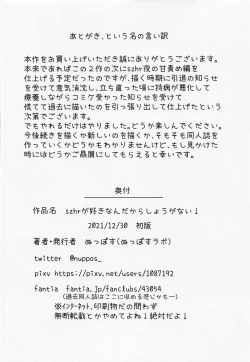 あとがき、という名の言い訳
本作をお買い上げいただき誠にありがとうございます。
本来であればこの2作の次にszhr夜の甘責め編を
仕上げる予定だったのですが、描く時期に引退の知らせ
を受けて意気消沈し、立ち直った頃に持病が悪化して
療養しながらコミケ受かった知らせを受けて
慌てて過去に描いたのを引っ張り出して仕上げたという
次第でございます。
でもやれるだけはやりました。どうか楽しんでください。
今後続きを描くか新しいのを描くか、そもそも同人誌を
作っていくかどうかもわかりませんけど、もし見かけた
時にはどうかご贔屓にしてもらえると幸いです。
奥付
作品名 szhrが好きなんだからしょうがない!
2021/12/30 初版
著者・発行者 ぬっぽす(ぬっぽすラボ)
twitter @nuppos_
pixv https://pixv.net/users/1087192
fantia fantia.jp/fanclubs/43054
(過去同人誌はここに収める感じかもー)
※インターネット、印刷物だの問わず
無断転載とかやめてよね!絶対だよ!